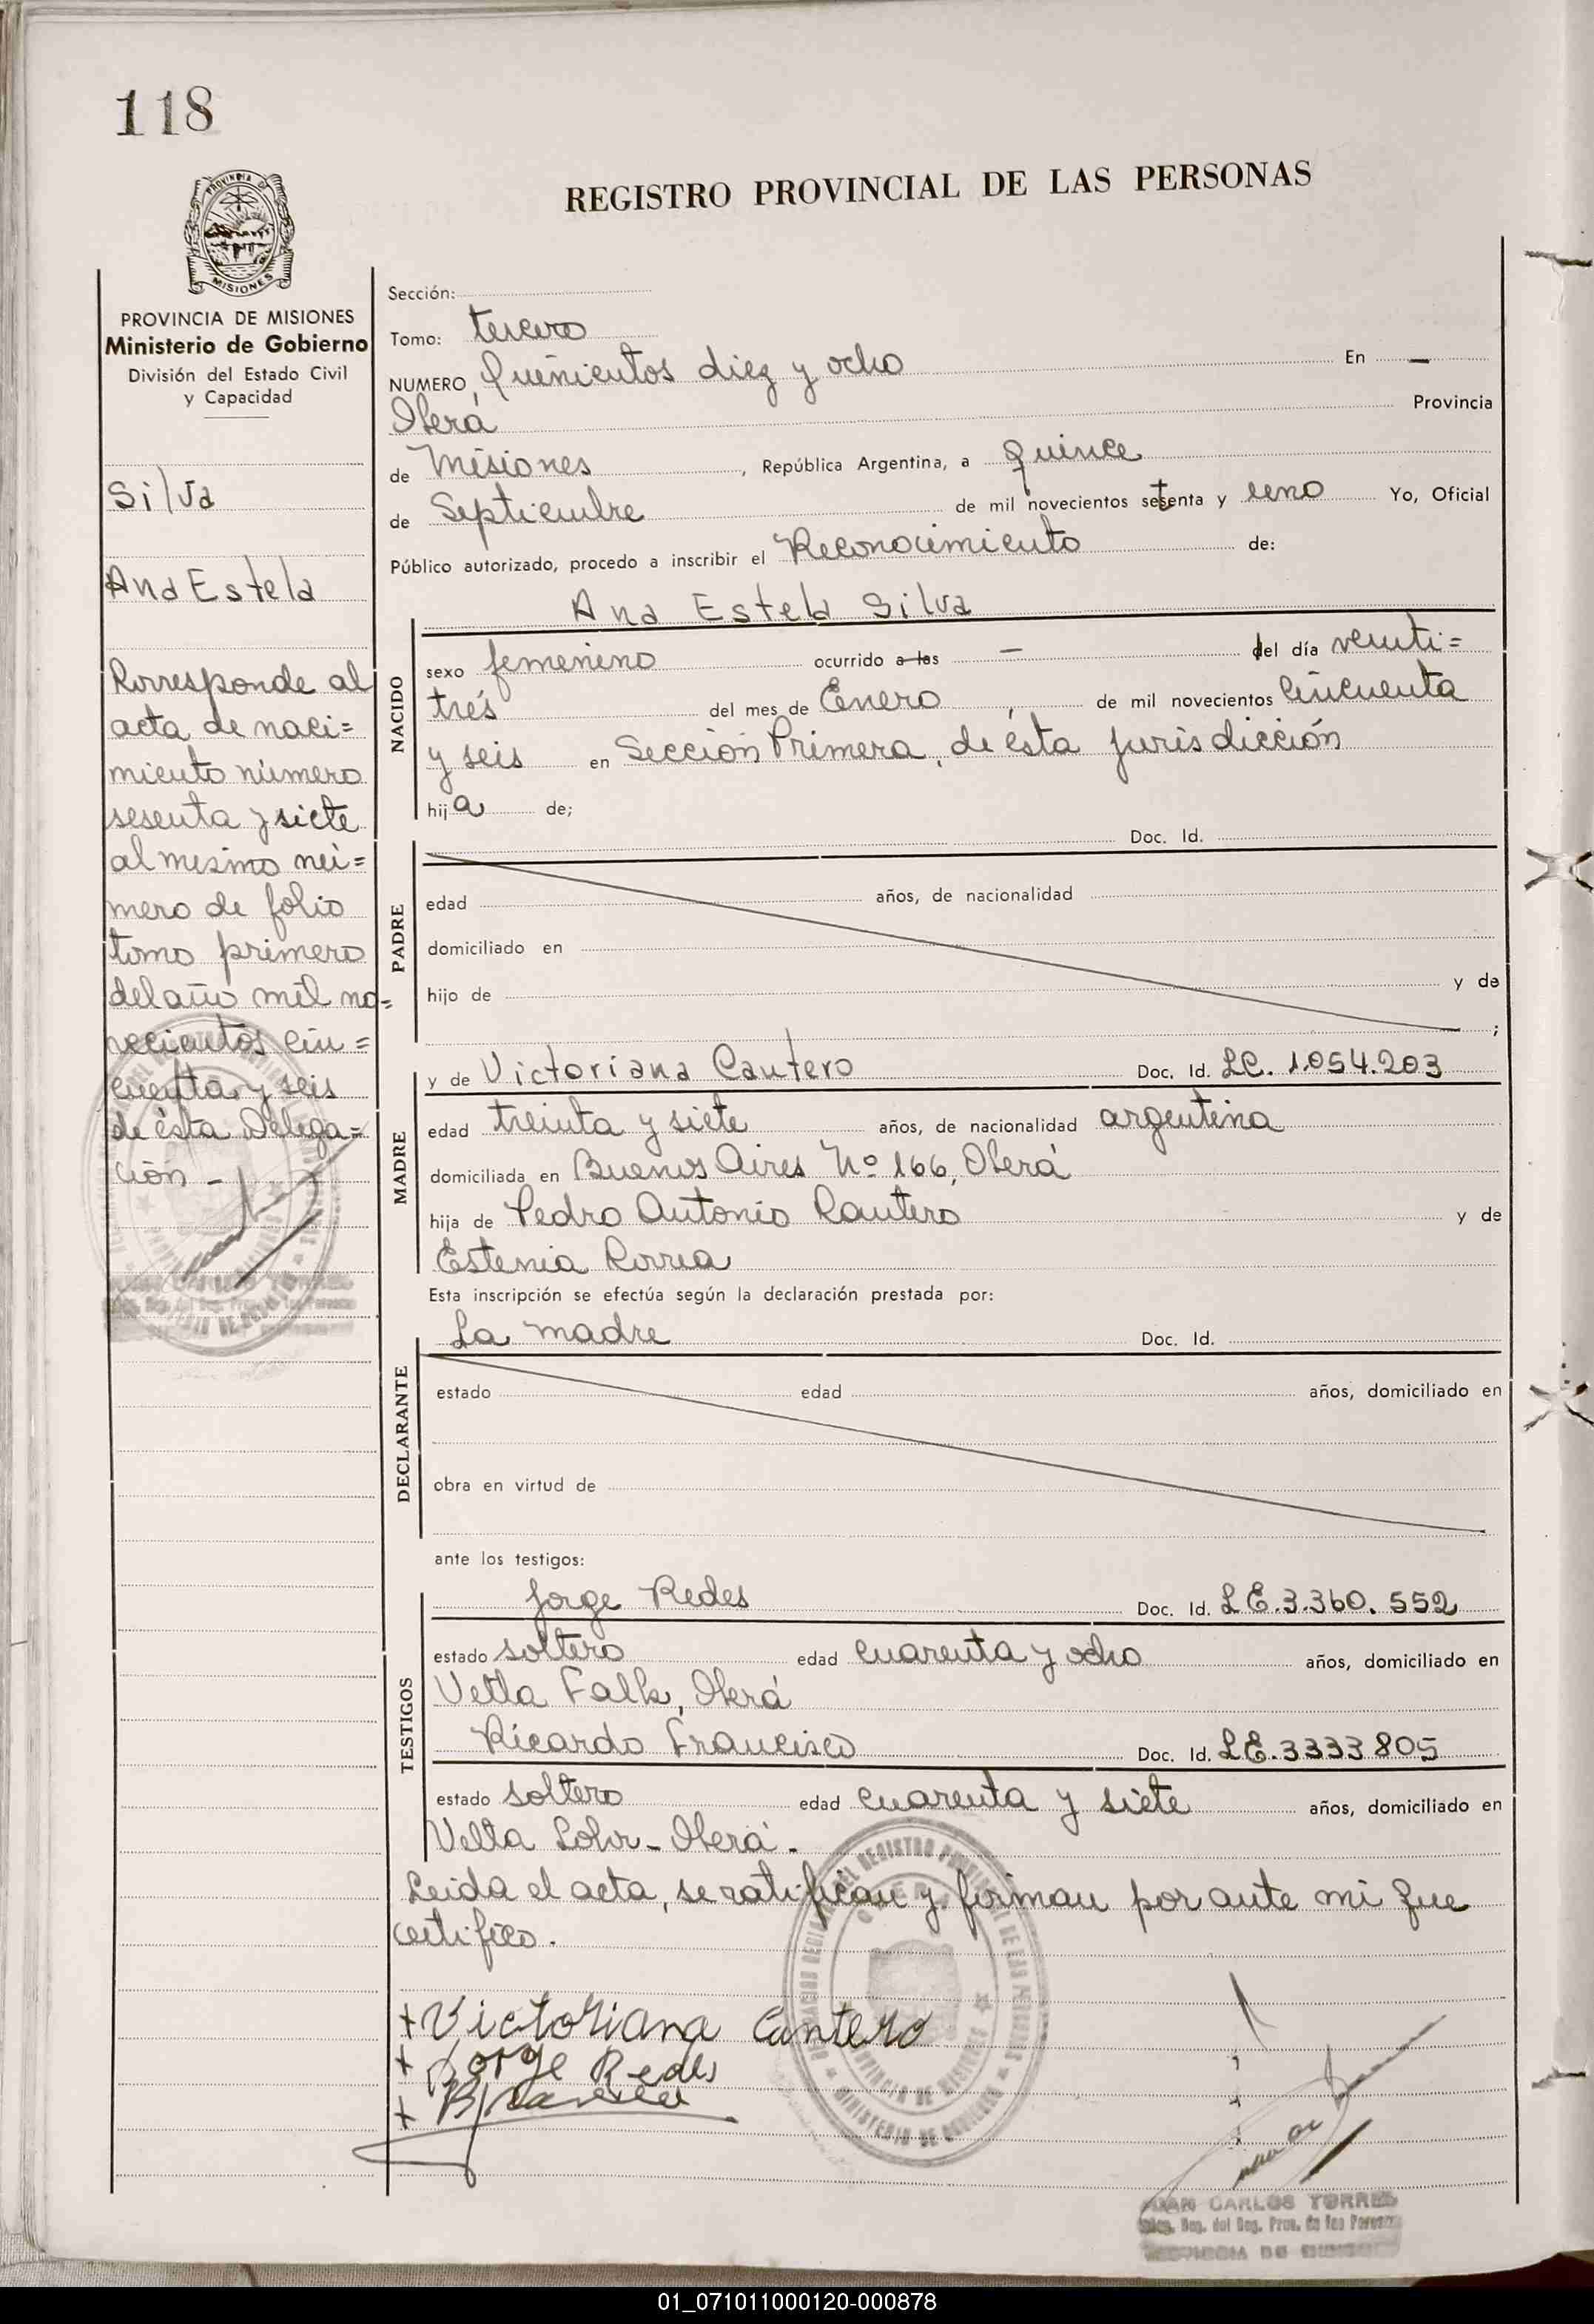 118
REGISTRO PROVINCIAL DE LAS PERSONAS
PROVINCIA DE MISIONES
MISIONES
PROVINCIA DE MISIONES
Ministerio de Gobierno
División del Estado Civil
y Capacidad
Silva
Ana Estela
Corresponde al
acta de naci=
miento número
sesenta y siete
al mismo nú=
mero de folio
tomo primero
del año mil no=
vecientos cin=
cuenta y seis
de ésta Delega=
ción -
JUAN CARLOS TORRES
Sección:
Tomo: tercero
NUMERO Quinientos diez y ocho En —
Oberá Provincia
de Misiones, República Argentina, a quince
de Septiembre de mil novecientos setenta y uno Yo, Oficial
Público autorizado, procedo a inscribir el Reconocimiento de:
Ana Estela Silva
NACIDO
sexo femenino ocurrido a las — del día veinti=
trés del mes de Enero, de mil novecientos cincuenta
y seis en Sección Primera, de ésta jurisdicción
hija de;
PADRE
Doc. Id.
edad años, de nacionalidad
domiciliado en
hijo de y de
;
MADRE
y de Victoriana Cantero Doc. Id. LC. 1.054.203
edad treinta y siete años, de nacionalidad argentina
domiciliada en Buenos Aires Nº 166, Oberá
hija de Pedro Antonio Cantero y de
Estenia Correa
Esta inscripción se efectúa según la declaración prestada por:
DECLARANTE
La madre Doc. Id.
estado edad años, domiciliado en
obra en virtud de
ante los testigos:
TESTIGOS
Jorge Redes Doc. Id. LE.3.360.552
estado soltero edad cuarenta y ocho años, domiciliado en
Falk, Oberá
Ricardo Francisco Doc. Id. LE.3333805
estado soltero edad cuarenta y siete años, domiciliado en
Villa Lohr - Oberá.
Leida el acta, se ratifican y firman por ante mi que
certifico.
+ Victoriana Cantero
+ Jorge Redes
+
JUAN CARLOS TORRES
01_071011000120-000878